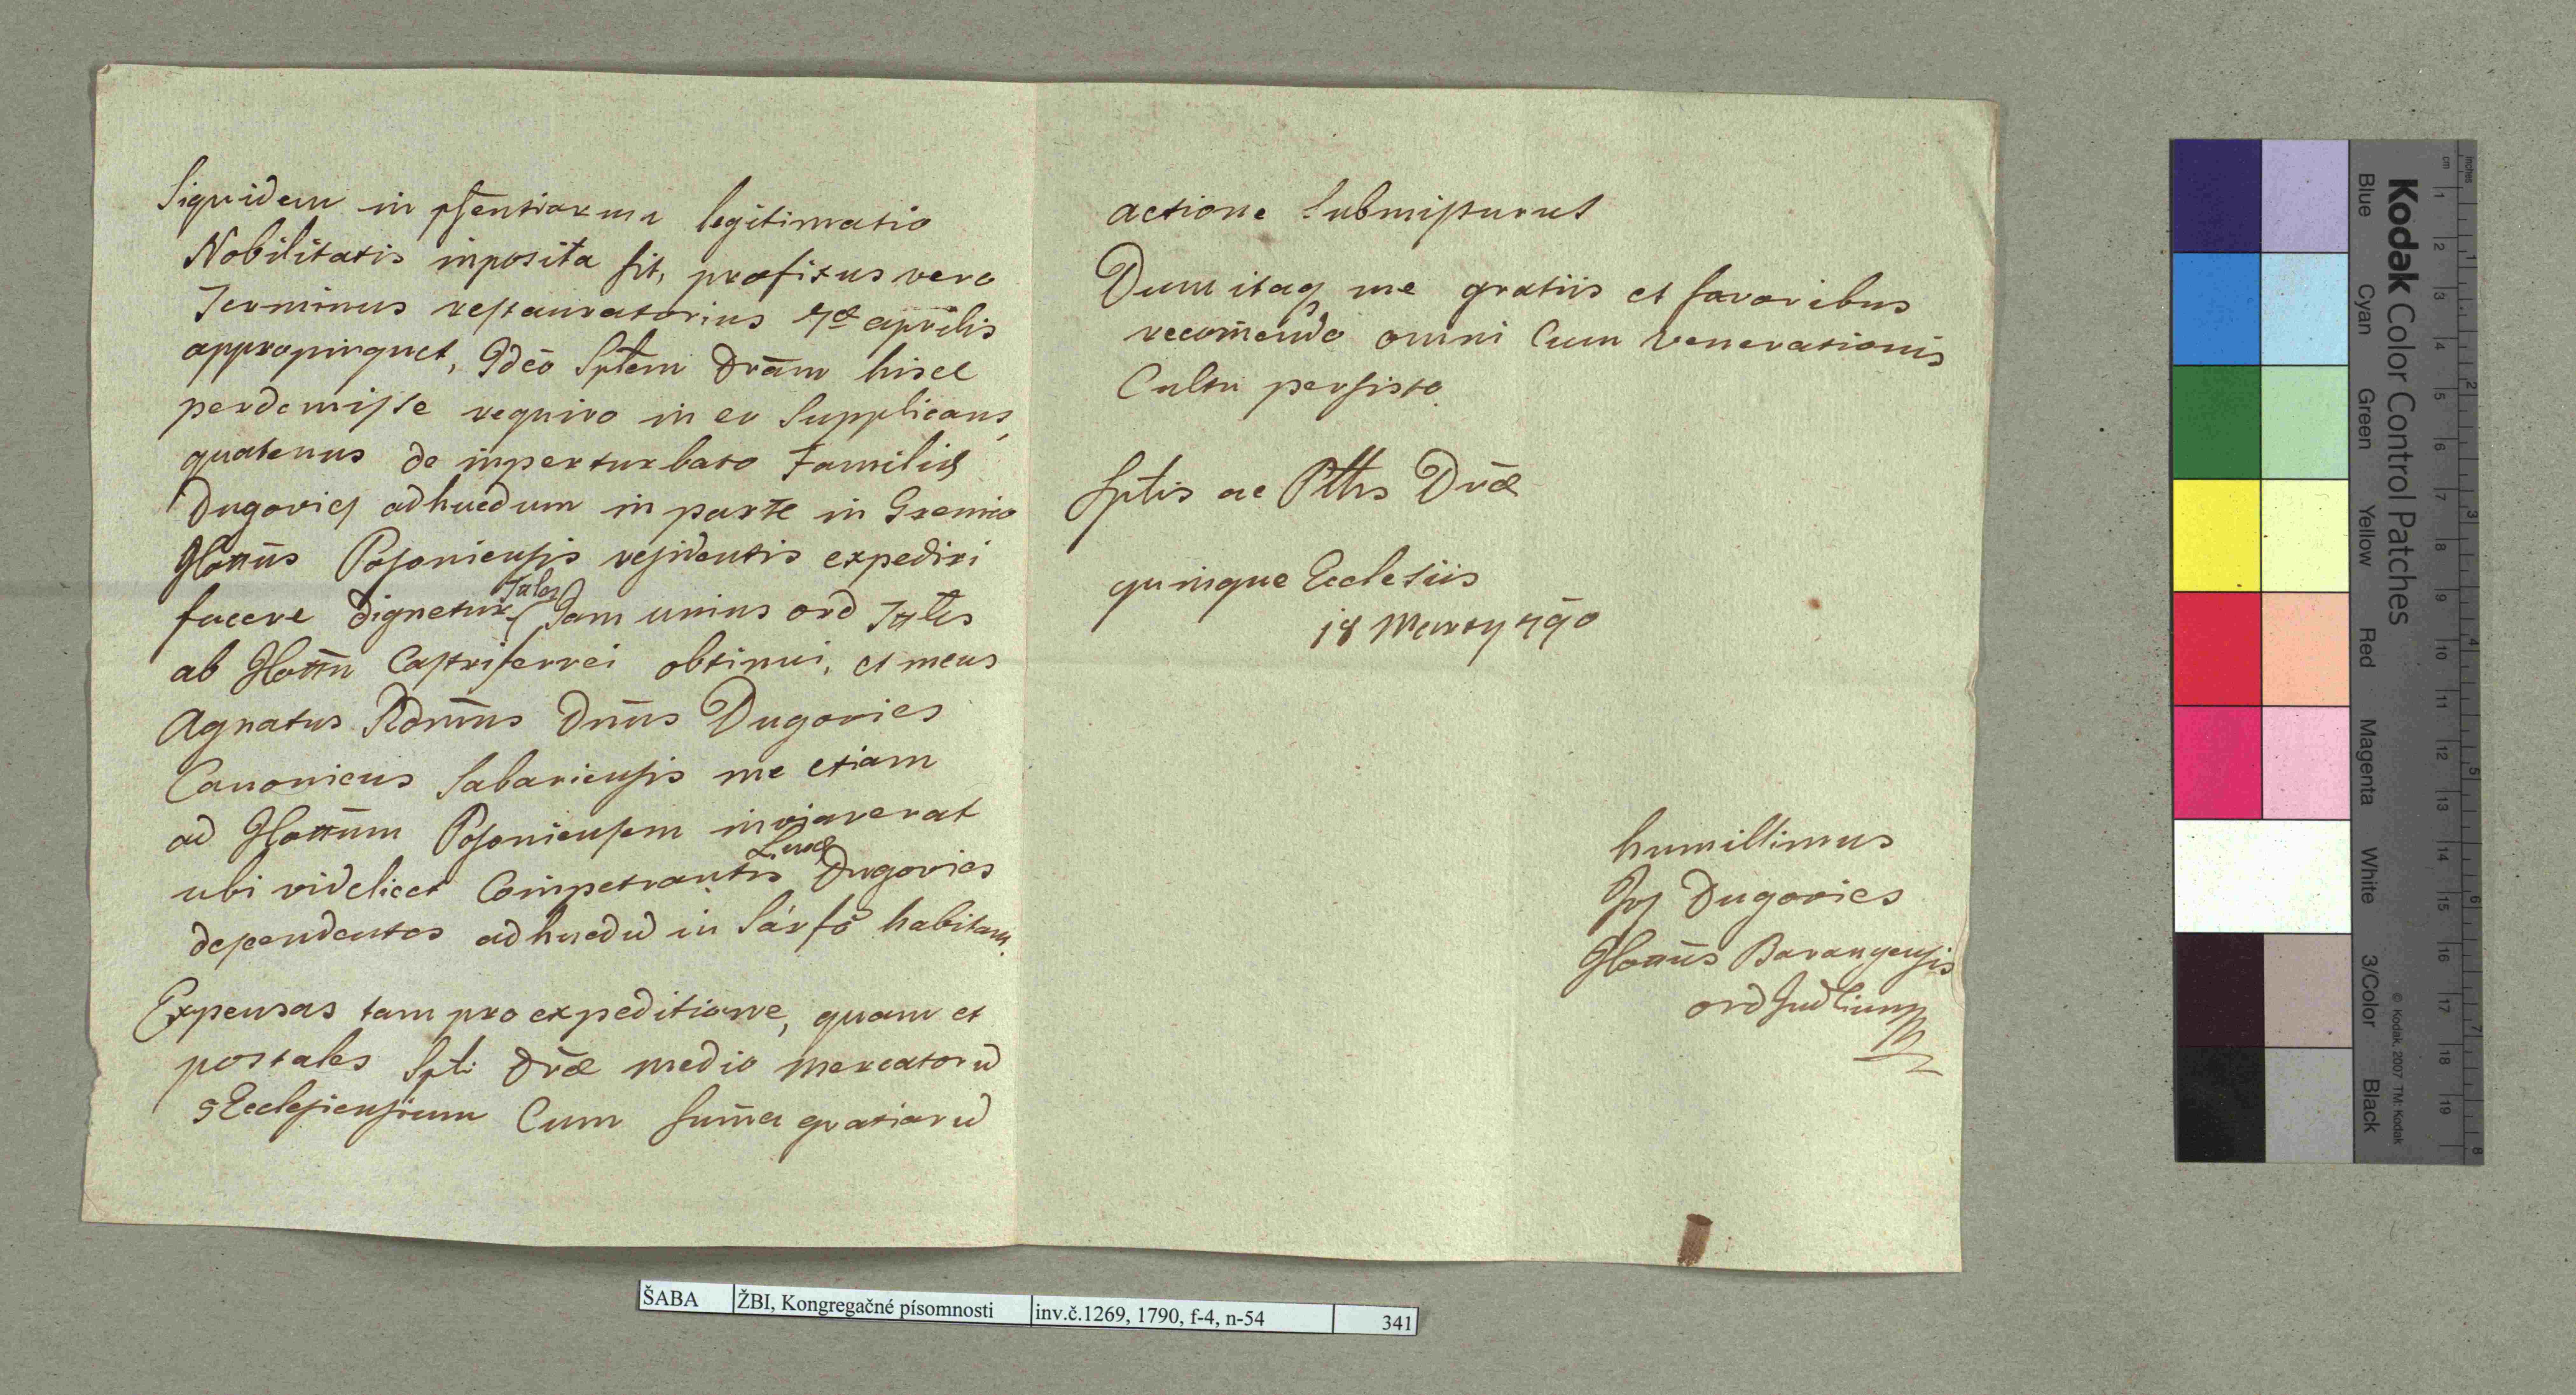 Siquidem in pſentiarum legitimatio
Nobilitatis inposita sit, praefixus vero
Terminus restauratorius 7a aprilis
appropinquet, Ideo Sptem Dram hisce
perdemisse requiro in eo Supplicans,
quatenus de inperturbato Familiae
Dugovics adhucdum in parte in Gremio
Cottūs Posoniensis residentis expediri
facere dignetur Tales
Jam unius ord Ttles
ab Cottu Castriferrei obtinui, et meus
Agnatus Rdmus Dnus Dugovics
Canonicus Sabariensis me etiam
ad Cottum Posoniensem inviaverat
ubi videlicet Compatrantis Lineae Dugovics
descendentes adhucdū in Sárfő habitant.
Expensas tam pro expeditione, quam et
postales Spti Drae medio mercatorū
5Ecclesiensium Cum suma gratiarū
actione Submissurus
Dum itaq me gratiis et favoribus
recomendo omni Cum venerationis
Cultu persisto.
Sptis ac Pttis Drae
quinque Ecclesiis
18 Marty 790
humillimus
Jos Dugovics
Cottūs Baranyensis
ord Judlium
ŠABA
ŽBI, Kongregačné písomnosti
inv.č.1269, 1790, f-4, n-54
341
Kodak Color Control Patches
© Kodak, 2007 TM: Kodak
Blue Cyan Green Yellow Red Magenta White 3/Color Black
inches
cm
1 2 3 4 5 6 7 8 9 10 11 12 13 14 15 16 17 18 19
1 2 3 4 5 6 7 8